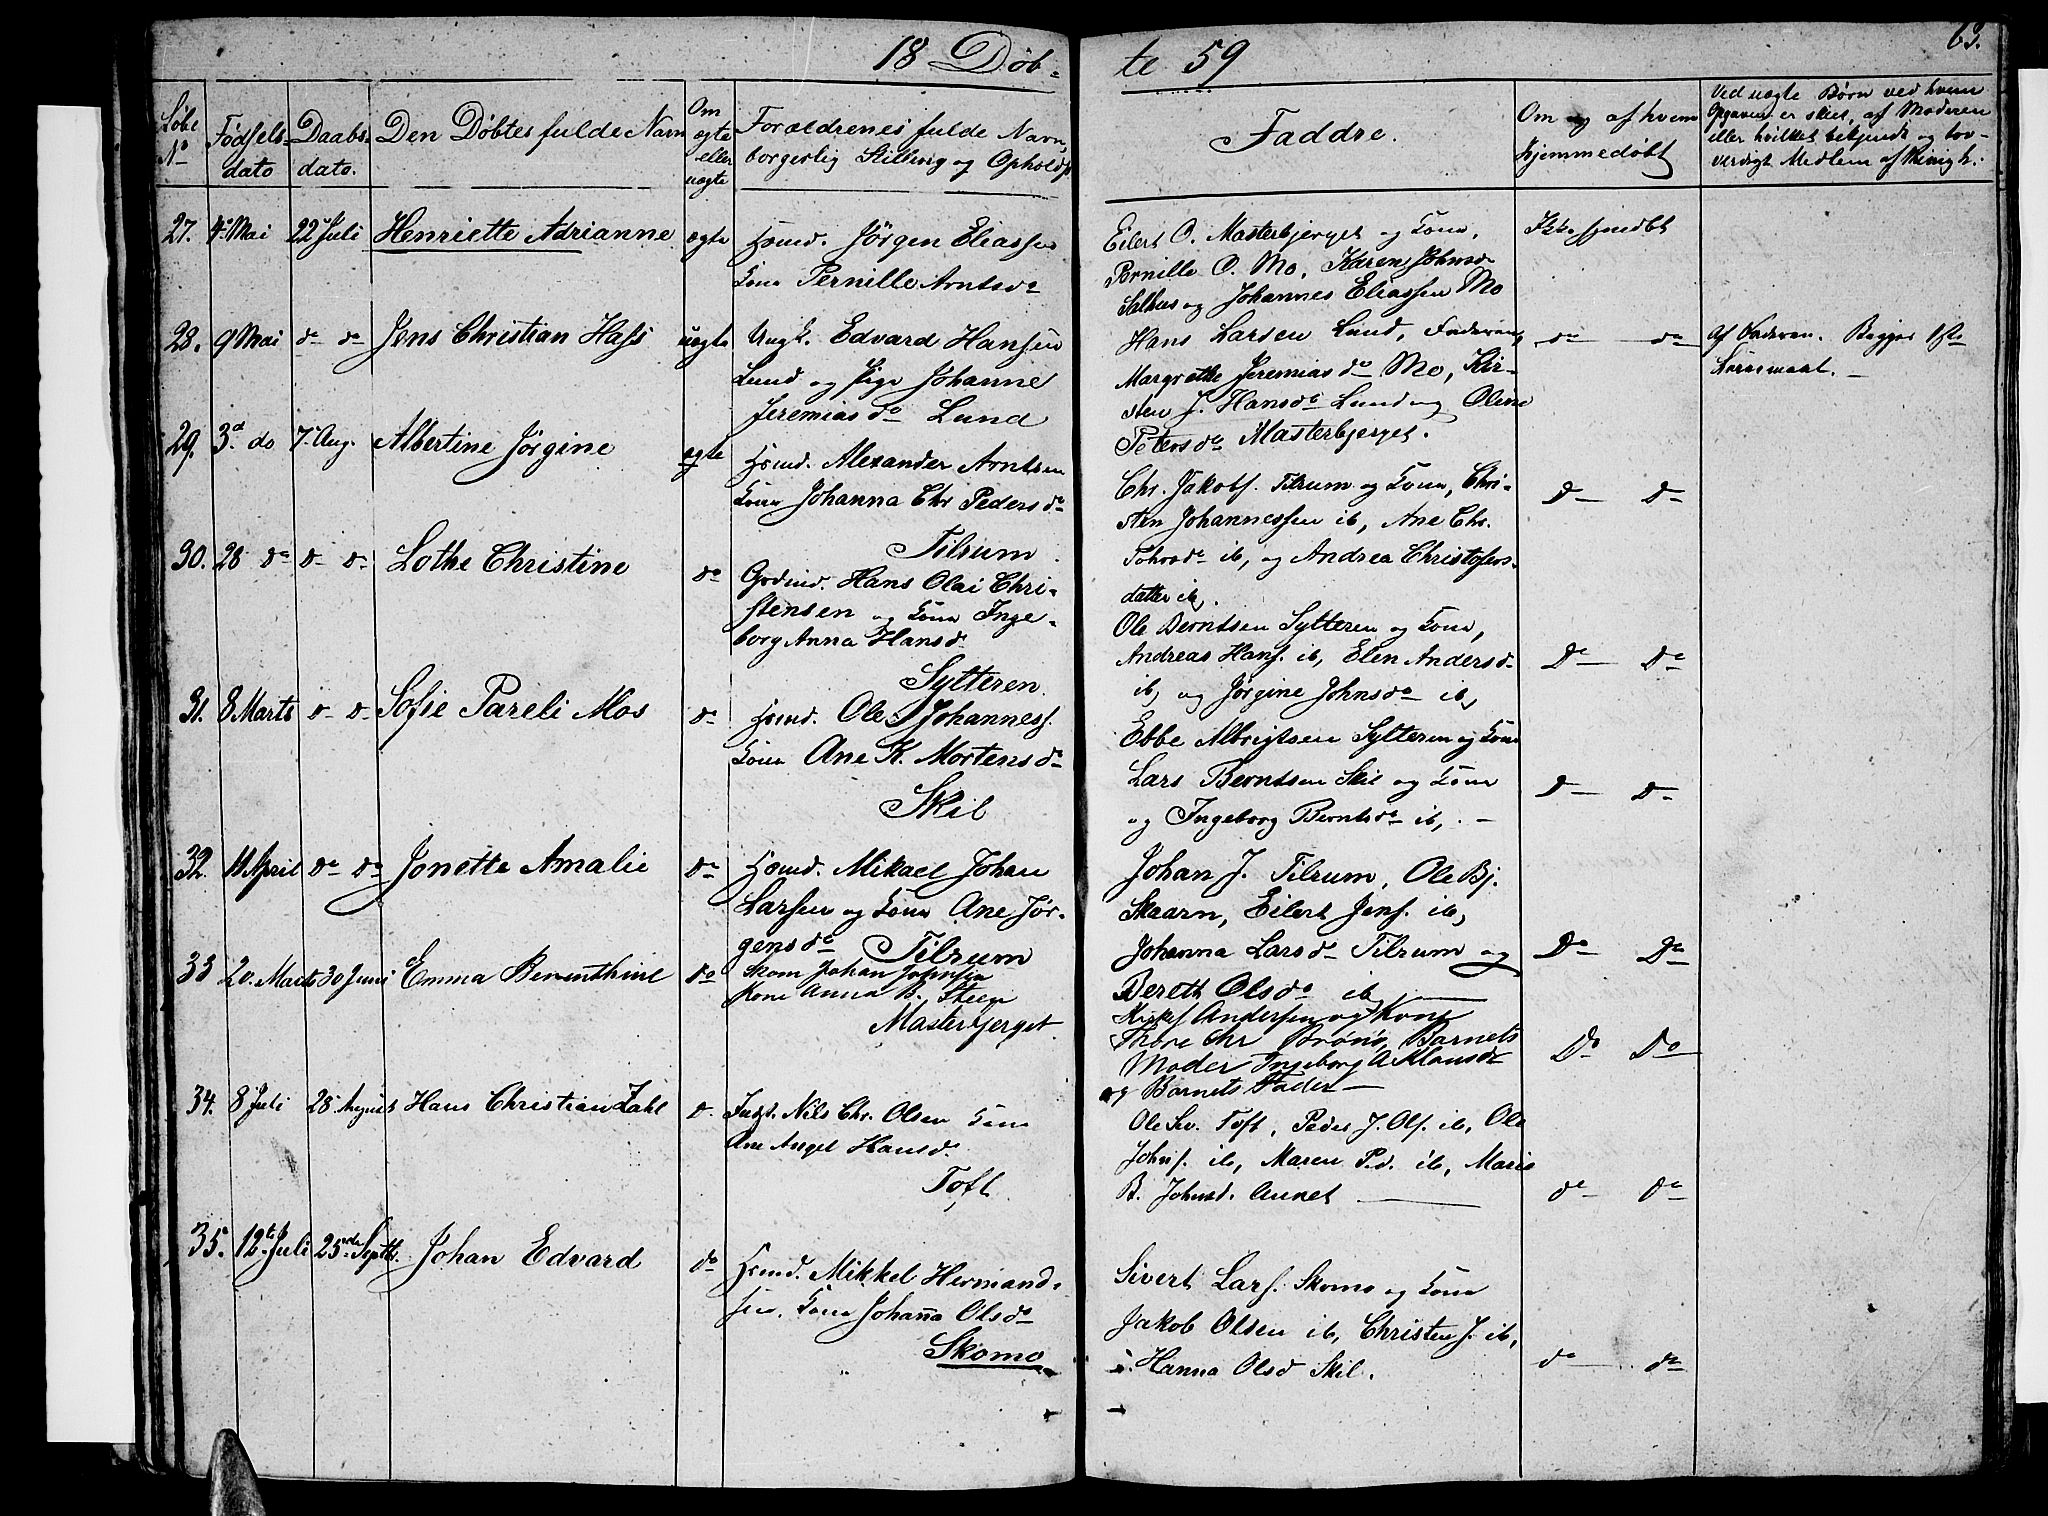 63.
18 Døb-
te 59
Løbe
No
Fødsels-
dato
Daabs-
dato.
Den Døbtes fulde Navn
Om
ægte
eller
uægte
Forældrenes fulde Navn,
borgerlig Stilling og Opholds
Faddre.
Om og af hvem
hjemmedøbt
Ved uægte Børn ved hvem
Opgaven er skeet, af Moderen
eller hvilket bekjendt og tro-
værdigt Medlem af Menigh.
27. 4de Mai 22 Juli Henriette Adrianne ægte Hsmd. Jørgen Eliassen
Kone Pernille Arntsdr
Eilert O. Masterbjerget og Kone,
Pernille O. Mo, Karen Johnsdr
og Johannes Eliassen Mo
Ikke hjmdbt
28. 9 Mai do do Jens Christian Hass uægte Ungk. Edvard Hansen
Lund og Pige Johanne
Jeremiasdr Lund
Hans Larsen Lund, Faderen,
Margrethe Jeremiasdr Mo, Kir-
sten J. Hansdr Lund og Oline
Petersdr Masterbjerget.
do do
Af Faderen. Begges 1ste
Leiermaal.
29. 3d do 7 Aug. Albertine Jørgine ægte Hsmd. Alexander Arntsen
Kone Johanna Chr Pedersdr
Tilrum
Chr. Jakobs. Tilrum og Kone, Chri-
sten Johannessen ib, Ane Chr.
Torosdr ib, og Andrea Christofers-
datter ib.
Do Do
30. 28 do do do Lothe Christine do Grdmd. Hans Olai Chri-
stensen og Kone Inge-
borg Anna Hansdr
Sytteren
Ole Berntsen Sytteren og Kone,
Andreas Hans. ib, Elen Andersdr
ib, og Jørgine Johnsdr ib,
Do Do
31. 8 Marts do do Sofie Pareli Mos do Hsmd. Ole Johanness.
Kone Ane K. Mortensdr
Skil
Ebbe Albrigtsen Sytteren og Kone
Lars Berntsen Skil og Kone
og Ingeborg Berntsdr ib,
Do Do
32. 11 April Do Do Jonette Amalie Do Hsmd. Mikael Johan
Larsen og Kone Ane Jør-
gensdr Tilrum
Johan J. Tilrum, Ole Bj.
Skaarn, Eilert Jens. ib,
Johanna Larsdr Tilrum og
Bereth Olsdr ib
Do Do
33 20. Marts 30 Juni Emma Berenthine do Skom Johan Johnsen
Kone Anna B. Steen
Masterbjerget
Andersen og Kone
Thore Chr Brønø, Barnets
Moder Ingeborg A Monsdr
og Barnets Fader
Do Do
34. 8 Juli 28 August Hans Christian Zahl do Indst. Nils Chr. Olsen Kone
Ane Angel Hansdr.
Toft
Ole Siv. Toft, Peder J. Ols. ib, Ole
Johns. ib, Maren Pd. ib, Marie
B. Johnsd. Aunet
do do
35. 12te Juli 25nde Septbr. Johan Edvard do Hsmd. Mikkel Hermand-
sen. Kone Johanna Olsdr
Skomo
Sivert Lars. Skomo og Kone
Jakob Olsen ib, Christen J. ib,
Hanna Olsd Skil.
do do